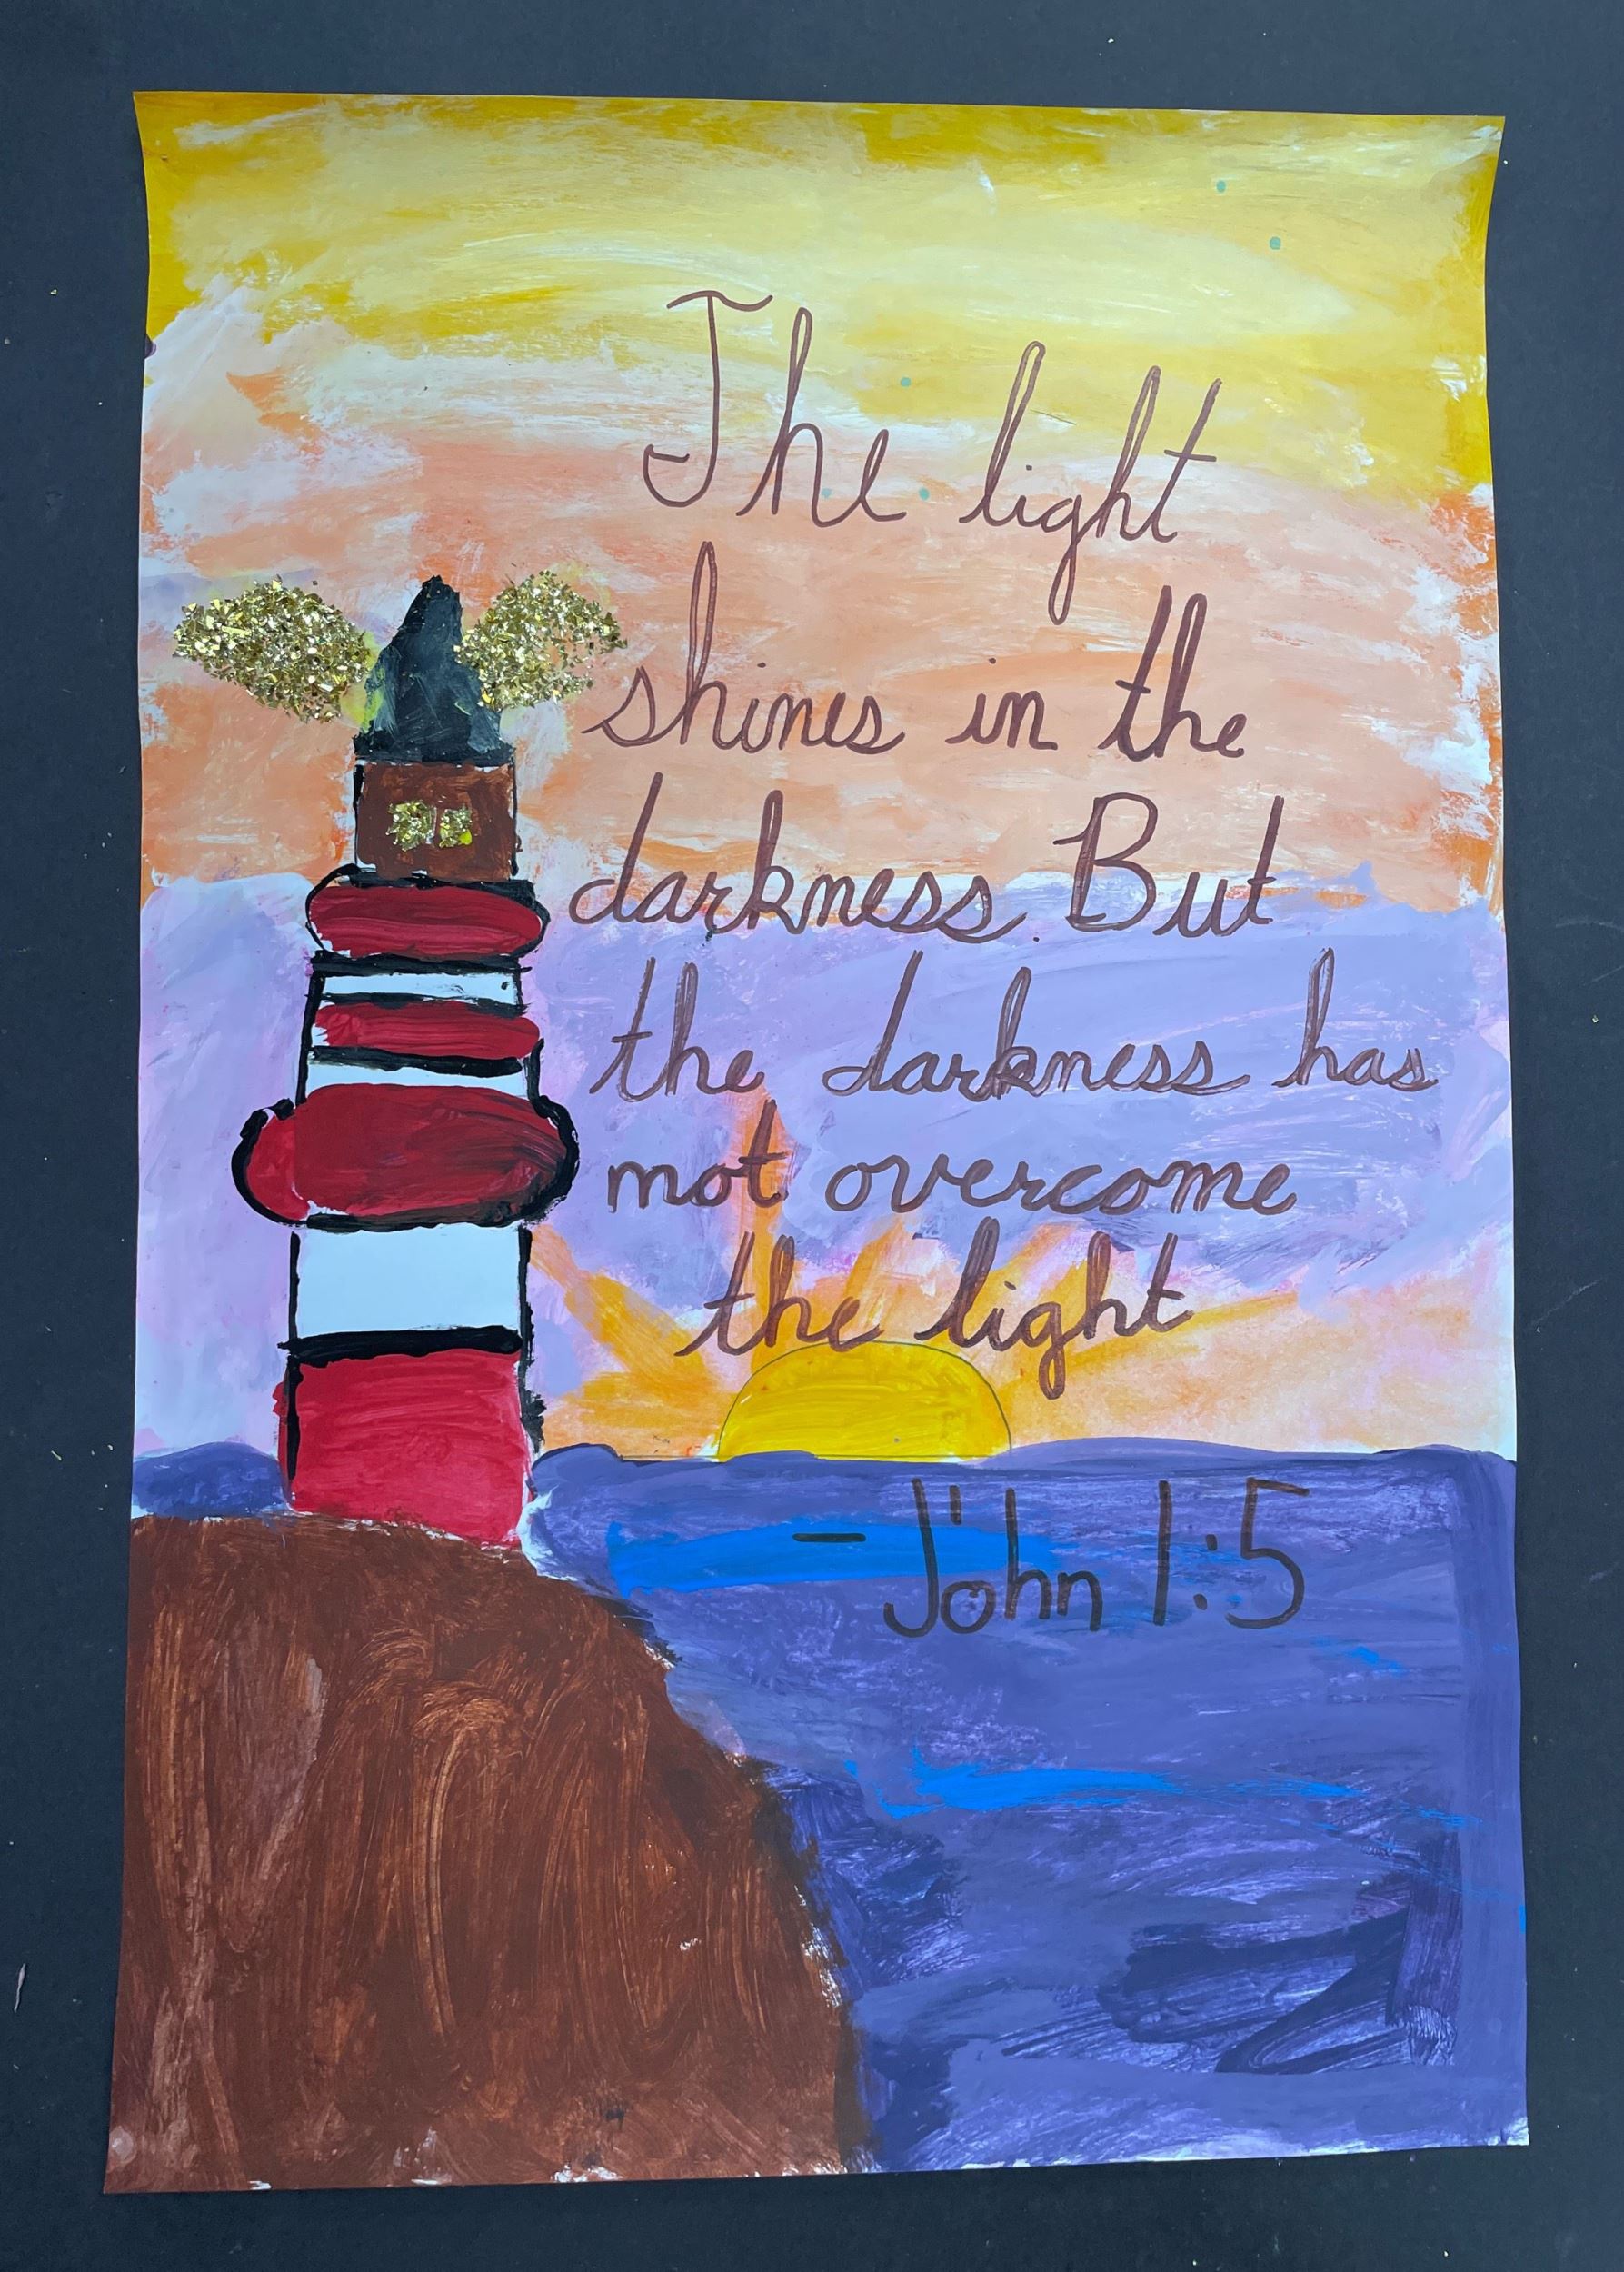 The light
shines in the
darkness. But
the darkness has
not overcome
the light
- John 1:5